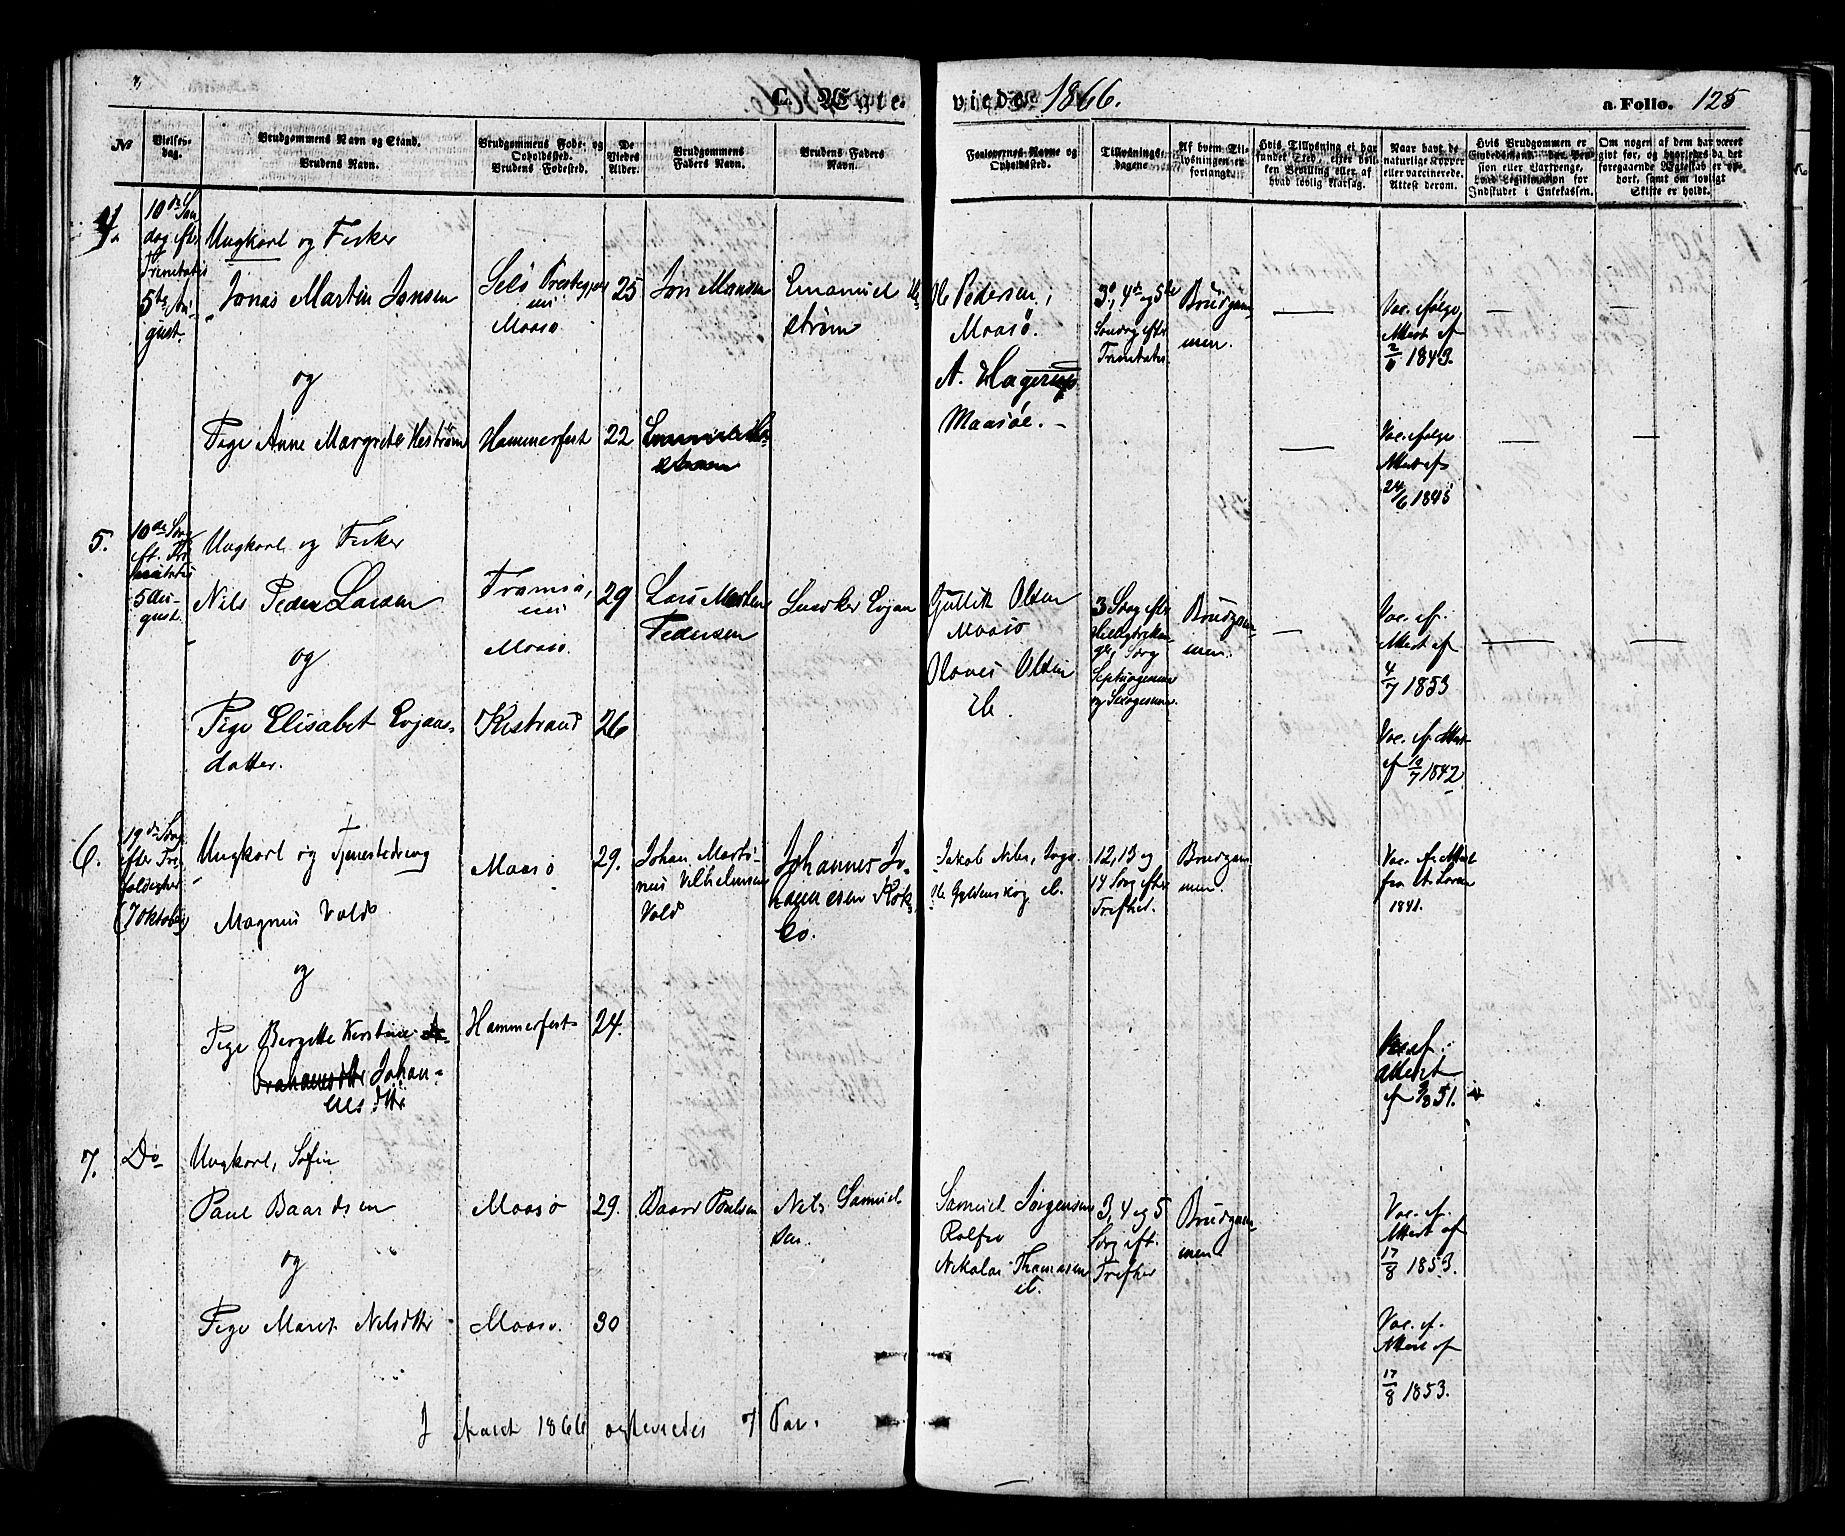 C. Ægte-
viede 1866.
a. Folio. 125
No
Vielses-
dag.
Brudgommens Navn og Stand.
Brudens Navn.
Brudgommens Føde- og
Opholdssted.
Brudens Fødested.
De
Viedes
Alder.
Brudgommens
Faders Navn.
Brudens Faders
Navn.
Forlovernes Navne og
Opholdssted.
Tillysnings-
dagene.
Af hvem Til-
lysningen er
forlangt.
Hvis Tillysning ei har
fundet Sted, efter hvil-
ken Bevilling eller af
hvad lovlig Aarsag.
Naar havt de
naturlige Kopper
eller vaccinerede.
Attest derom.
Hvis Brudgommen er
sion eller Vartpenge,
hvad Legitimation for
Indskuder i Enkekassen.
Om nogen af dem har været
gift før, og hvorledes da det
foregaaende Ægteskab er op-
hørt, samt om lovligt
Skifte er holdt.
4.
10de Søn
dag efter
Trinitatis
5te Au-
gust.
Ungkarl og Fisker
Jonas Martin Jonsen
og
Pige Anne Margrete
Maasø
Hammerfest
25
22
Jon Monsen
Emanuel
strøm
Ole Pedersen,
Maasø.
A. Hagerup
Maasøe.
3de, 4de og 5te
Søndag efter
Trinitatis
Brudgom
men.
Vac. ifølge
Attest af
1843.
Vac. ifølge
Attest af
24/6 1845
5.
10de Søng
eft. Tri
nitatis
5 Au-
gust.
Ungkarl og Fisker
Nils Peder Larsen
og
Pige Elisabet Evjans-
datter.
Tromsø,
Maasø.
Kistrand
29
26
Lars
Pedersen
Evjan
Gullik Olsen
Maasø
Olsen
ib.
3 Søng efter
Helligtreko
ger, Søng
Septuagesima
og Sexagesima.
Brudgom
men.
Vac. ef.
Attest af
4/7 1853
Vac. ef. Attest
af 12/7 1842
6.
19de Søng
efter Tre
foldighed
(7 Oktober)
Ungkarl og Tjenestedreng
Magnus Vold
og
Pige Bergitte Kirstine
Johan-
nesdttr
Maasø
Hammerfest
29.
24.
Johan Marti-
nus Vilhelmsen
Vold
Johannes Jo-
hannesen
Jakob Nils, Ingø
Ole Gyldenskog ib.
12, 13 og
14 Søng efter
Trefhed.
Brudgom
men.
Vac. ef. Attest
fra
1841.
Vac. ef.
Attest
7.
Do
Ungkarl, Søfin
Paul Baardsen
og
Pige Maret Nilsdttr
Maasø
Maasø.
29.
30
Baard Poulsen
Nils Samuel
sen.
Samuel Jørgensen
Rolfsø
Nikolai Thomasen
ib.
3, 4 og 5
Søng eft.
Trefhed
Brudgom-
men.
Vac. ef.
Attest af
17/8 1853.
Vac. ef.
Attest af
17/8 1853.
I Aaret 1866 ogteviedes 7 Par.